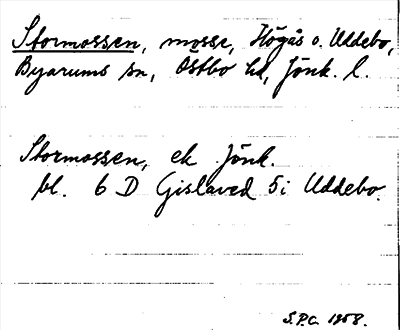 Stormossen, mosse, Högås o. Uddebo,
Byarums sn, Östbo hd, Jönk. l.
Stormossen, ek Jönk.
bl. 6 D Gislaved 5i Uddebo.
S.P.C. 1958.